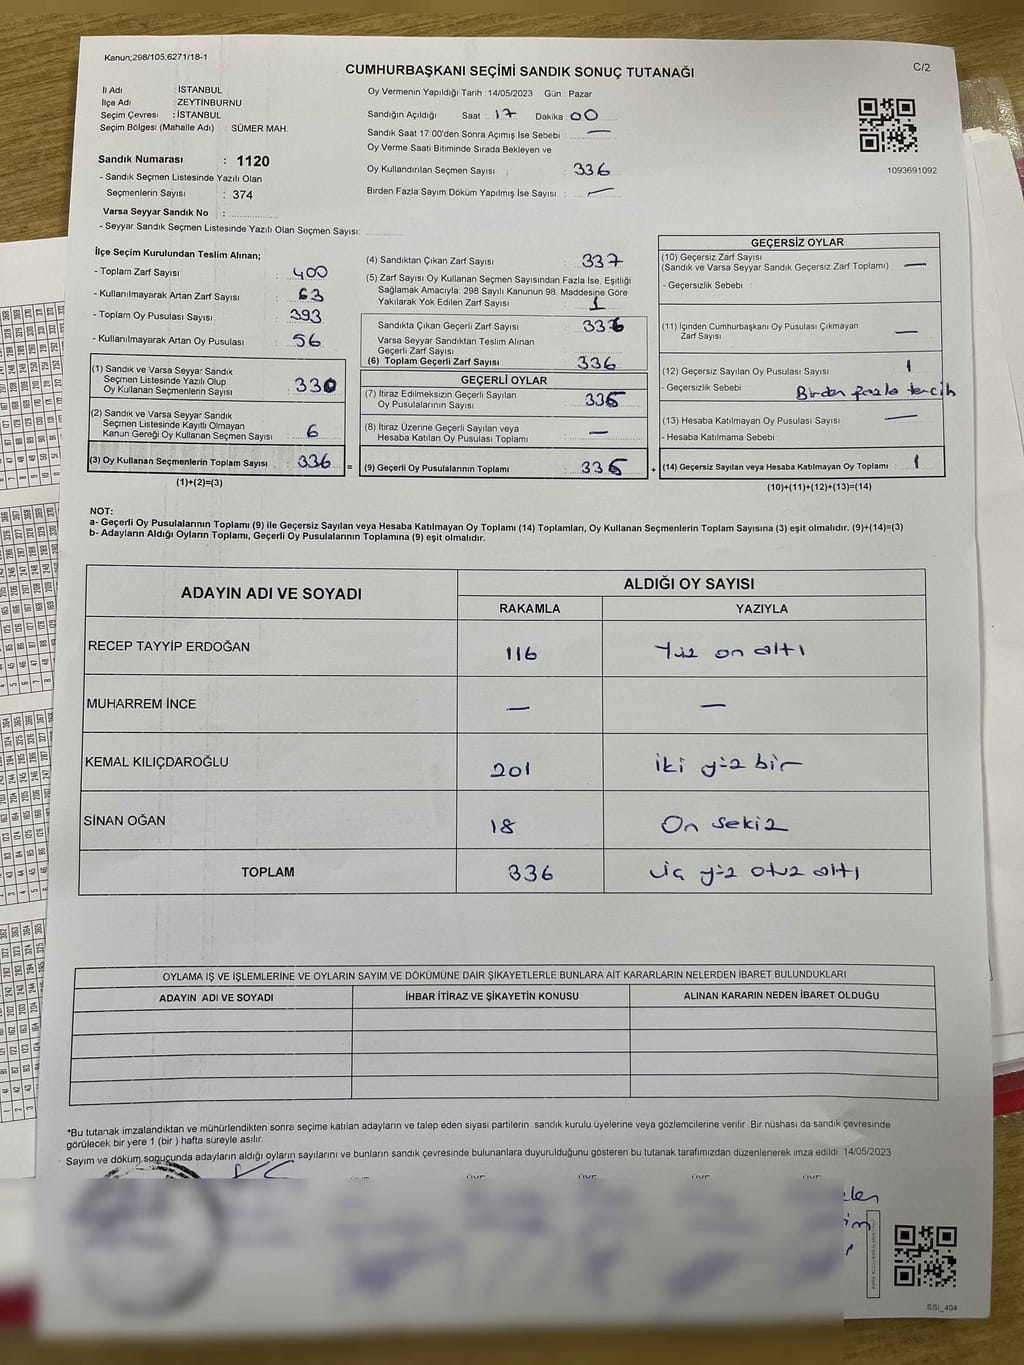 Kanun;298/105;6271/18-1
CUMHURBAŞKANI SEÇİMİ SANDIK SONUÇ TUTANAĞI
C/2
İl Adı : İSTANBUL
İlçe Adı : ZEYTİNBURNU
Seçim Çevresi : İSTANBUL
Seçim Bölgesi (Mahalle Adı) : SÜMER MAH.
Sandık Numarası : 1120
- Sandık Seçmen Listesinde Yazılı Olan
Seçmenlerin Sayısı : 374
Varsa Seyyar Sandık No :
- Seyyar Sandık Seçmen Listesinde Yazılı Olan Seçmen Sayısı:
Oy Vermenin Yapıldığı Tarih : 14/05/2023 Gün : Pazar
Sandığın Açıldığı Saat 17 Dakika 00
Sandık Saat 17:00'den Sonra Açımış İse Sebebi —
Oy Verme Saati Bitiminde Sırada Bekleyen ve
Oy Kullandırılan Seçmen Sayısı : 336
Birden Fazla Sayım Döküm Yapılmış İse Sayısı : —
1093691092
İlçe Seçim Kurulundan Teslim Alınan;
- Toplam Zarf Sayısı : 400
- Kullanılmayarak Artan Zarf Sayısı : 63
- Toplam Oy Pusulası Sayısı : 393
- Kullanılmayarak Artan Oy Pusulası : 56
(1) Sandık ve Varsa Seyyar Sandık
Seçmen Listesinde Yazılı Olup
Oy Kullanan Seçmenlerin Sayısı : 330
(2) Sandık ve Varsa Seyyar Sandık
Seçmen Listesinde Kayıtlı Olmayan
Kanun Gereği Oy Kullanan Seçmen Sayısı : 6
(3) Oy Kullanan Seçmenlerin Toplam Sayısı : 336 =
(1)+(2)=(3)
(4) Sandıktan Çıkan Zarf Sayısı : 337
(5) Zarf Sayısı Oy Kullanan Seçmen Sayısından Fazla İse, Eşitliği
Sağlamak Amacıyla; 298 Sayılı Kanunun 98. Maddesine Göre
Yakılarak Yok Edilen Zarf Sayısı : 1
Sandıkta Çıkan Geçerli Zarf Sayısı : 336
Varsa Seyyar Sandıktan Teslim Alınan
Geçerli Zarf Sayısı :
(6) Toplam Geçerli Zarf Sayısı : 336
GEÇERLİ OYLAR
(7) İtiraz Edilmeksizin Geçerli Sayılan
Oy Pusulalarının Sayısı : 335
(8) İtiraz Üzerine Geçerli Sayılan veya
Hesaba Katılan Oy Pusulası Toplamı : —
(9) Geçerli Oy Pusulalarının Toplamı : 335 +
GEÇERSİZ OYLAR
(10) Geçersiz Zarf Sayısı
(Sandık ve Varsa Seyyar Sandık Geçersiz Zarf Toplamı) : —
- Geçersizlik Sebebi :
(11) İçinden Cumhurbaşkanı Oy Pusulası Çıkmayan
Zarf Sayısı : —
(12) Geçersiz Sayılan Oy Pusulası Sayısı : 1
- Geçersizlik Sebebi : Birden fazla tercih
(13) Hesaba Katılmayan Oy Pusulası Sayısı : —
- Hesaba Katılmama Sebebi :
(14) Geçersiz Sayılan veya Hesaba Katılmayan Oy Toplamı : 1
(10)+(11)+(12)+(13)=(14)
NOT:
a- Geçerli Oy Pusulalarının Toplamı (9) ile Geçersiz Sayılan veya Hesaba Katılmayan Oy Toplamı (14) Toplamları, Oy Kullanan Seçmenlerin Toplam Sayısına (3) eşit olmalıdır. (9)+(14)=(3)
b- Adayların Aldığı Oyların Toplamı, Geçerli Oy Pusulalarının Toplamına (9) eşit olmalıdır.
ADAYIN ADI VE SOYADI
ALDIĞI OY SAYISI
RAKAMLA YAZIYLA
RECEP TAYYİP ERDOĞAN 116 Yüz on altı
MUHARREM İNCE — —
KEMAL KILIÇDAROĞLU 201 iki yüz bir
SİNAN OĞAN 18 On sekiz
TOPLAM 336 üç yüz otuz altı
OYLAMA İŞ VE İŞLEMLERİNE VE OYLARIN SAYIM VE DÖKÜMÜNE DAİR ŞİKAYETLERLE BUNLARA AİT KARARLARIN NELERDEN İBARET BULUNDUKLARI
ADAYIN ADI VE SOYADI İHBAR İTİRAZ VE ŞİKAYETİN KONUSU ALINAN KARARIN NEDEN İBARET OLDUĞU
*Bu tutanak imzalandıktan ve mühürlendikten sonra seçime katılan adayların ve talep eden siyasi partilerin sandık kurulu üyelerine veya gözlemcilerine verilir. Bir nüshası da sandık çevresinde
görülecek bir yere 1 (bir ) hafta süreyle asılır.
Sayım ve döküm sonucunda adayların aldığı oyların sayılarını ve bunların sandık çevresinde bulunanlara duyurulduğunu gösteren bu tutanak tarafımızdan düzenlenerek imza edildi. 14/05/2023
SSI_404